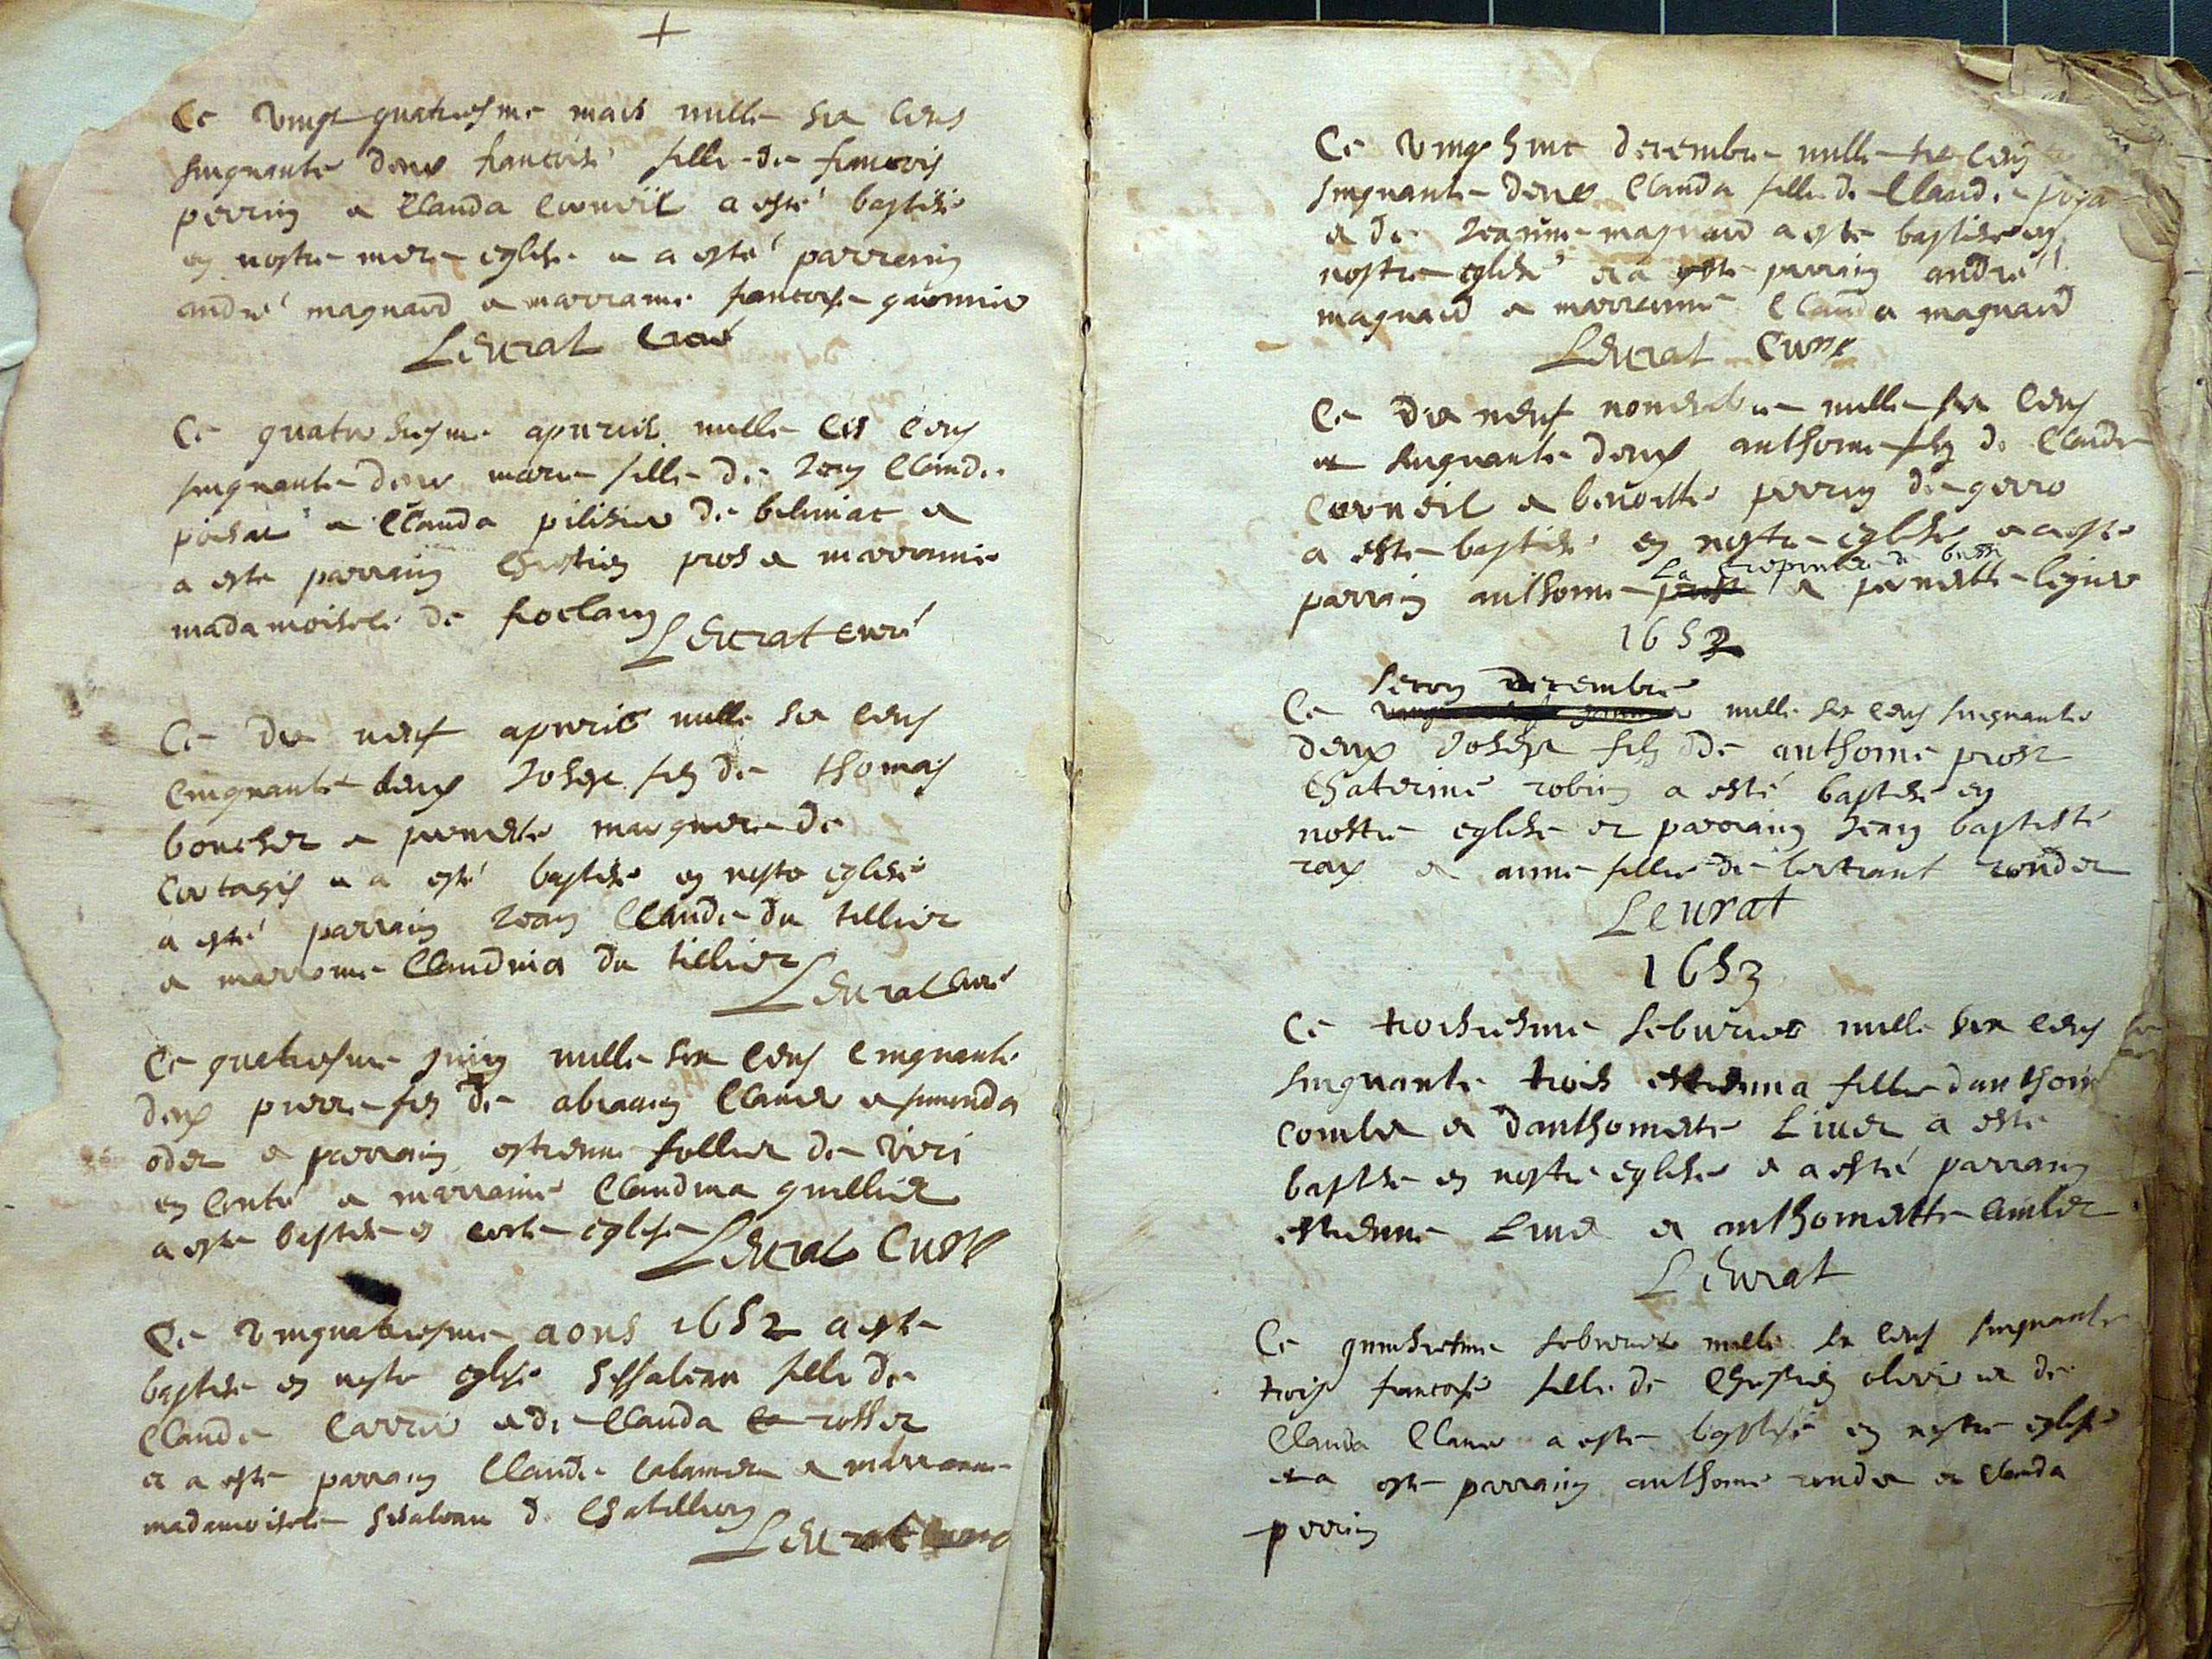 Ce vingt quatriesme mars mille six cens
sinquante deux francoise fille de francois
perrin et Clauda Corneil a esté baptisée
en nostre mere eglise et a esté parrain
andré magnard et marraine francoise
Leurat Curé
Ce quatorsiesme apvril mille cens
sinquante deux marie fille de Jean Claude
et Clauda de beliniac et
a este parrain Chrestien pros et marraine
madamoisele de
Leurat curé
Ce dix neuf apvril mille six cens
cinquante deux Joseph fils de thomas
boucher et pernette marguere de
et a esté baptisé en nostre eglise
a esté parrain Jean Claude du tillier
et marraine Claudina du tillier
Leurat Curé
Ce quatriesme juing mille six cens cinquante
deux pierre fils de abraam Claner et
oder et parrain estienne follier de viri
en conté et marraine Claudina guillier
a este baptisé en eglise
Leurat Curé
Ce vingquatriesme aous 1652 a este
baptisée en nostre eglise fille de
Claude Carrier et de Clauda rossier
et a este parrain Claude et marraine
madamoisele de Chatillion
Leurat
Ce ving huit decembre mille six cens
sinquante deux Clauda fille de Claude
et de Jeanne magnard a este baptisée en
nostre eglise et a este parrain andre
magnard et marraine Clauda magnard
Leurat Curé
Ce dix neuf novembre mille six cens
et sinquante deux anthoine filz de Claude
Corneil et benoitte perrin de
a este baptisé en nostre eglise et a este
La de
parrain anthoine et pernette
1653
secon decembre
Ce mille six cens sinquante
deux Joseph filz de anthoine prost
Chaterine robin a esté baptisé en
nostre eglise et parrain Jean baptiste
rax et anne fille de bertrant ronder
Leurat
1653
Ce troisiesme feburier mille six cens
sinquante trois estienna fille danthoine
combet et danthoinette Liver a este
baptisé en nostre eglise et a esté parrain
estienne Liver et anthoinette
Leurat
Ce quinsiesme febvrier mille six cens sinquante
trois francoise fille de Chrestien olivier et de
Clauda Claner a este baptisé en nostre eglise
et a este parrain anthoine ronder et Clauda
perrin